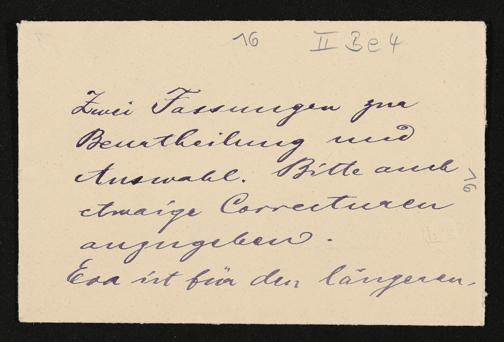 16 II Be 4
Zwei Fassungen zur
Beurtheilung und
Auswahl. Bitte auch
etwaige Correcturen
anzugeben.
Eva ist für den längeren.
16